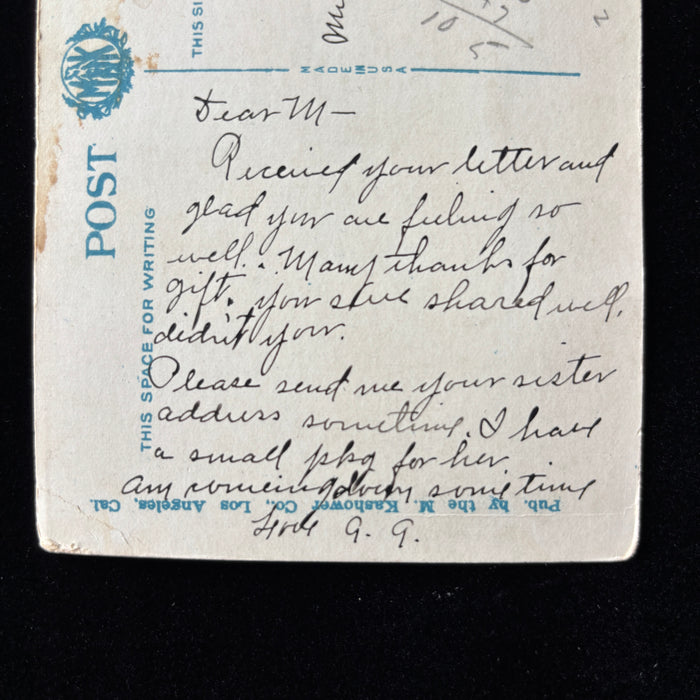 THIS
10 5
MADE IN USA
MKK
POST
THIS SPACE FOR WRITING
Dear M—
Received your letter and
glad you are feeling so
well. Many thanks for
gift. you sure shared well,
didn't you.
Please send me your sister
address sometime. I have
a small pkg for her
am coming down sometime
Love G. G.
Pub. by the M. Kashower Co., Los Angeles, Cal.